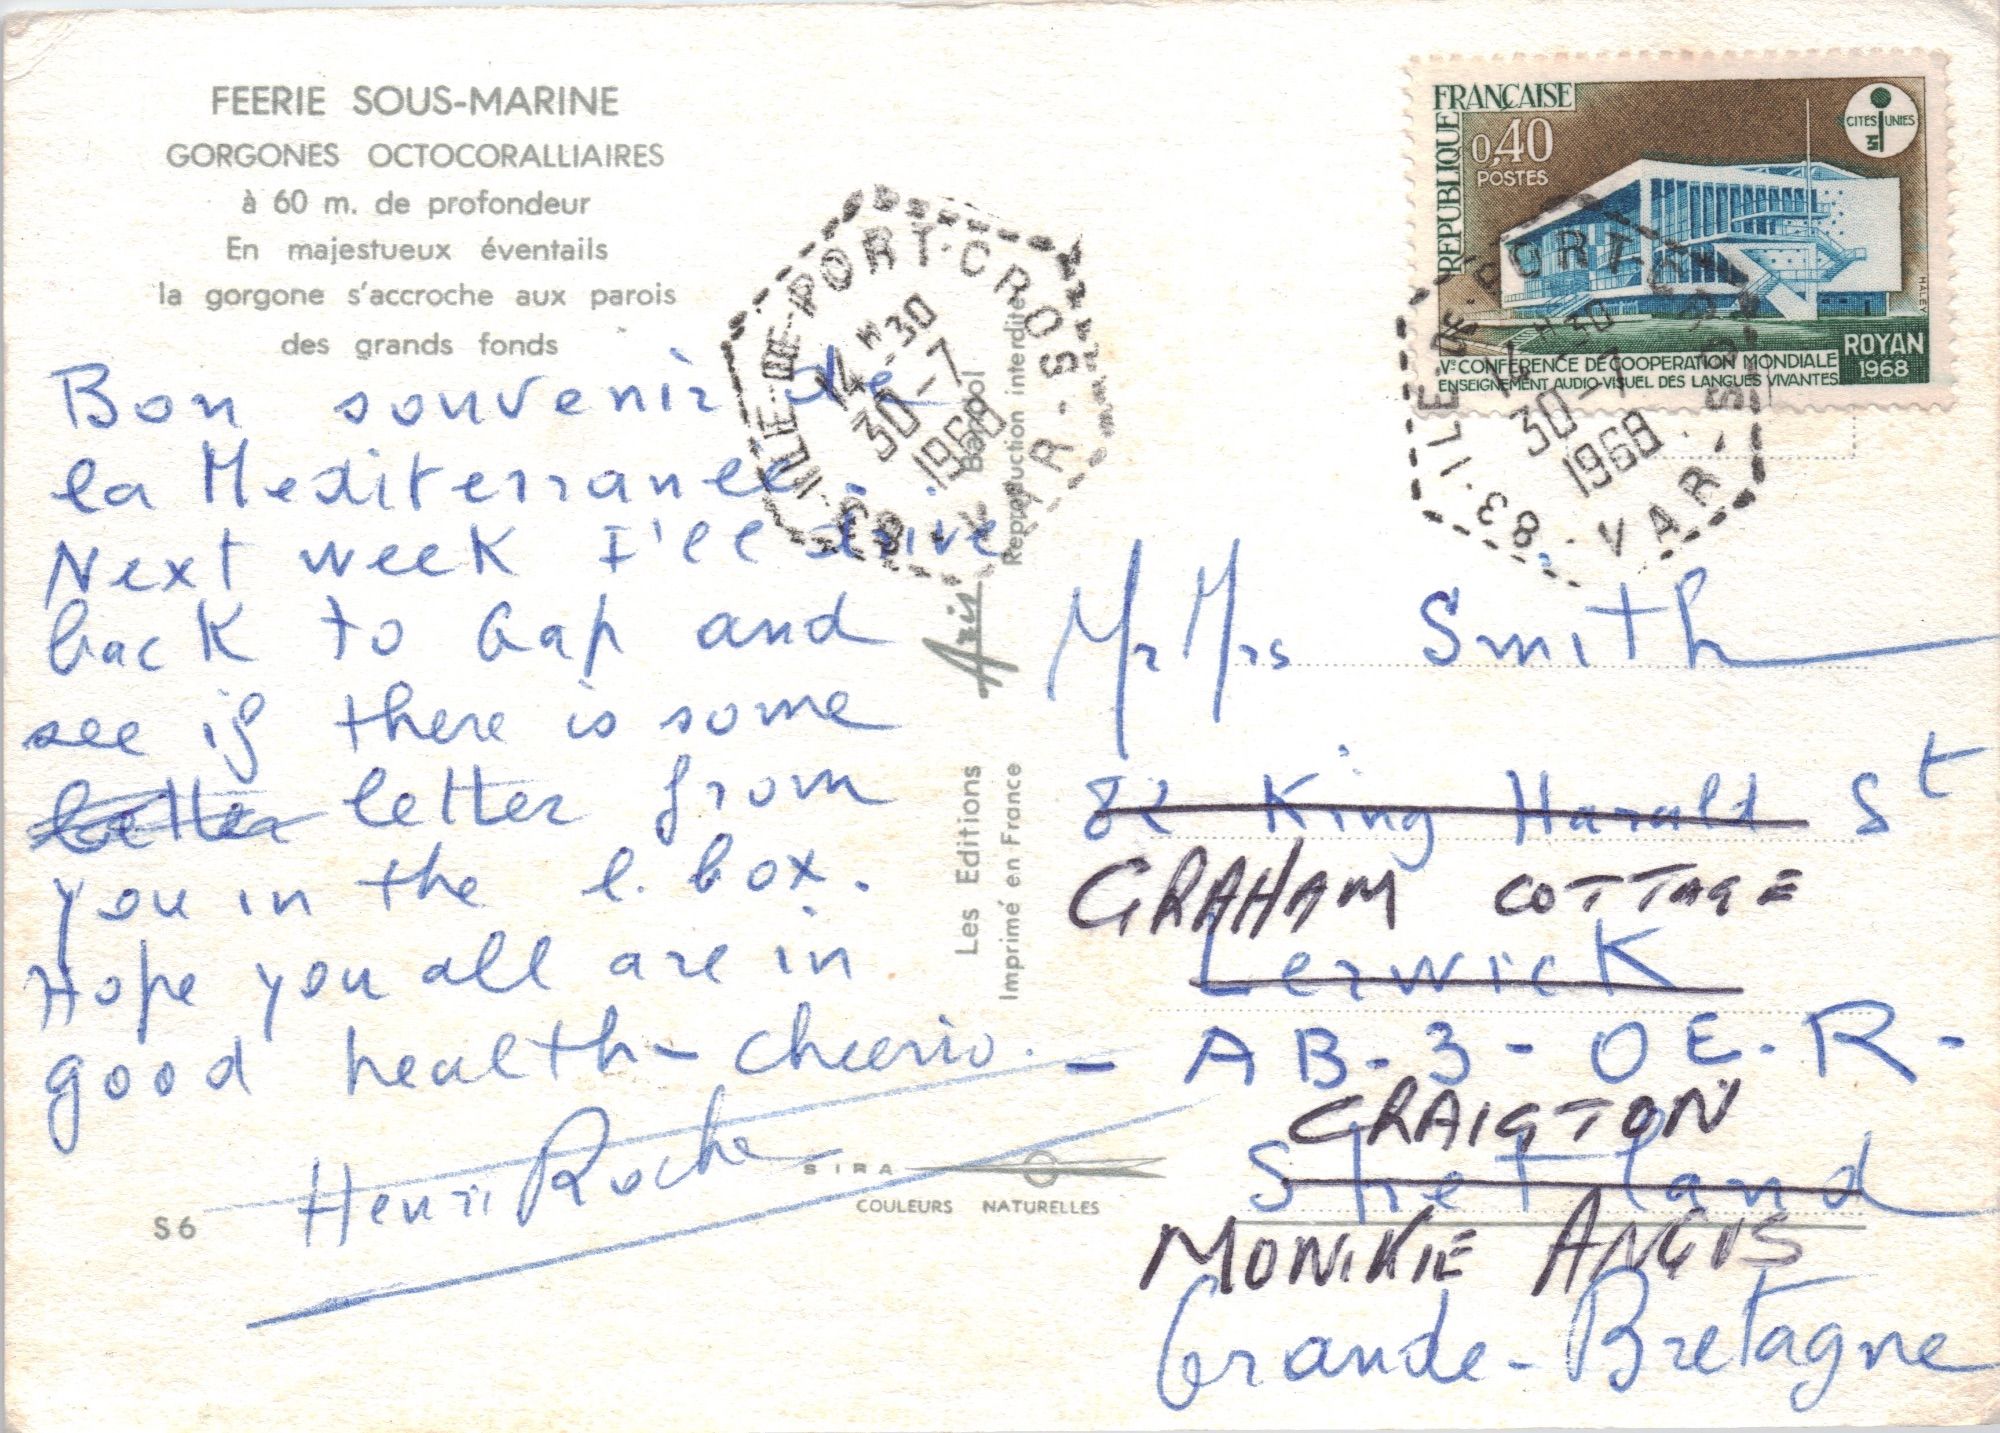 FEERIE SOUS-MARINE
GORGONES OCTOCORALLIAIRES
à 60 m. de profondeur
En majestueux éventails
la gorgone s'accroche aux parois
des grands fonds
Bon souvenir de
la Mediterranee.
Next week I'll drive
back to Gap and
see if there is some
letter letter from
you in the l. box.
Hope you all are in
good health - cheerio. -
Henri Roche
S6
SIRA
COULEURS NATURELLES
Les Editions Aris Bandol
Imprimé en France Reproduction interdite
83 · ILE-DE-PORT-CROS · VAR
14 H-30
30-7
1968
REPUBLIQUE FRANÇAISE
0,40
POSTES
CITES UNIES
HALEY
Ve CONFERENCE DE COOPERATION MONDIALE
ENSEIGNEMENT AUDIO-VISUEL DES LANGUES VIVANTES
ROYAN
1968
83 · ILE-DE-PORT-CROS · VAR
14 H-30
30-7
1968
Mr Mrs Smith
82 King Harald St
GRAHAM COTTAGE
Lerwick
AB-3-OE.R-
CRAIGTON
Shetland
MONIKIE ANGUS
Grande-Bretagne